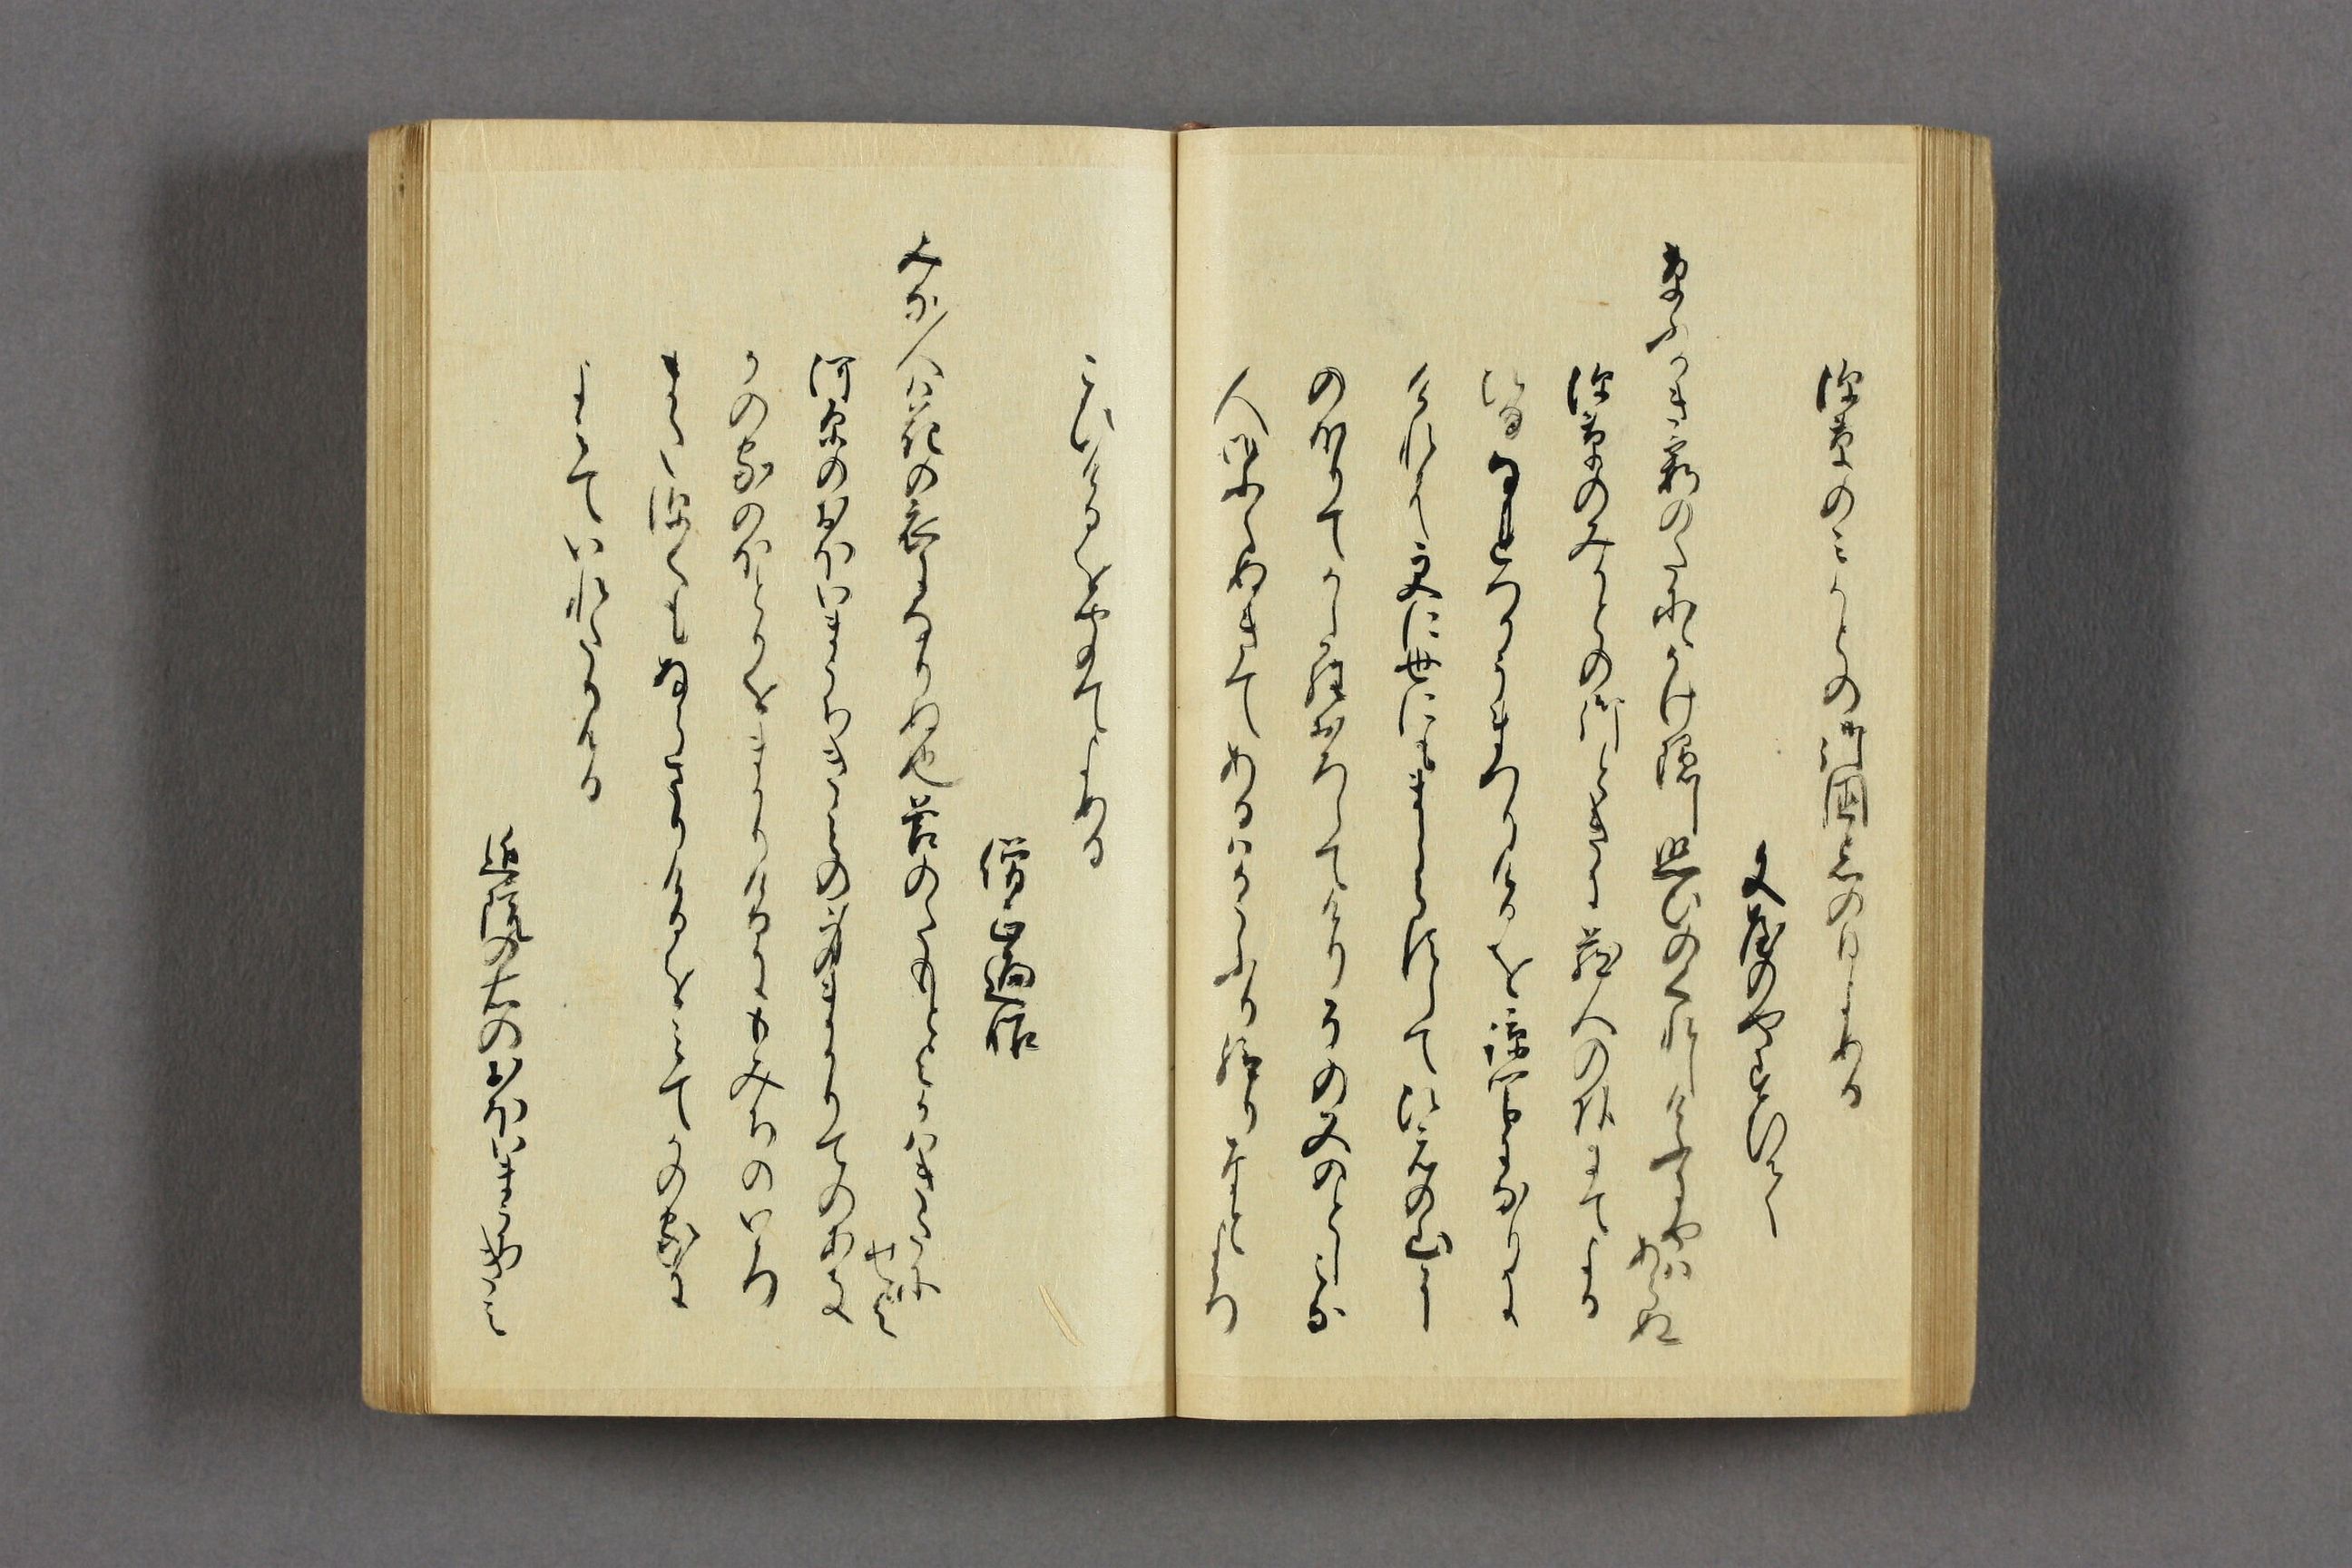 深草のみかとの御國忌の日よめる
文屋のやすひて
草ふかき霞の谷にかけ隠し照日のくれしけふにやは
あらぬ
深草のみかとの御ときに蔵人の頭にてよる
ひるなれつかうまつりけるを諒闇になりに
けれは更に世にもましらすしてひえの山に
のほりてかしらおろしてけりその又のとしみな
人御ふくぬきてあるはかうふり給はりなとよろ
こひけるをきゝてよめる
僧正遍昭
みな人は花の衣になりぬ也苔のたもとよかはきたに
せよ
河原のおほいまうちきみの身まかりてのあき
かの家のほとりをまかりけるにもみちのいろ
また深くもならさりけるをみてかの家に
よみていれたりける
近院の右のおほいまうちきみ